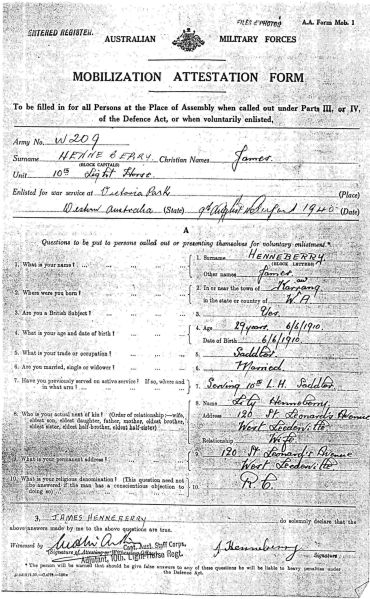 ENTERED REGISTER.
A.A. Form Mob. 1
AUSTRALIAN MILITARY FORCES
MOBILIZATION ATTESTATION FORM
To be filled in for all Persons at the Place of Assembly when called out under Parts III, or IV, of the Defence Act, or when voluntarily enlisted.
Army No. W209
Surname HENNEBERRY Christian Names James.
(BLOCK CAPITALS)
Unit 10th Light Horse.
Enlisted for war service at Victoria Park (Place)
Western Australia (State) 1940 (Date)
A
Questions to be put to persons called out or presenting themselves for voluntary enlistment.*
1. What is your name? 1. Surname HENNEBERRY
(BLOCK LETTERS)
Other names James.
2. Where were you born? 2. In or near the town of
in the state or country of W.A
3. Are you a British Subject? 3. Yes.
4. What is your age and date of birth? 4. Age 29 years. 6/6/1910.
Date of Birth 6/6/1910.
5. What is your trade or occupation? 5. Saddler.
6. Are you married, single or widower? 6. Married.
7. Have you previously served on active service? If so, where and in what arm? 7. Serving 10th L.H. Saddler.
8. Who is your actual next of kin? (Order of relationship:—wife, eldest son, eldest daughter, father, mother, eldest brother, eldest sister, eldest half-brother, eldest half-sister) 8. Name Henneberry
Address 120 St Leonard's Avenue
West Leederville
Relationship Wife
9. What is your permanent address? 9. 120 St Leonard's Avenue
West Leederville
10. What is your religious denomination? (This question need not be answered if the man has a conscientious objection to doing so) 10. R C.
I, JAMES HENNEBERRY do solemnly declare that the above answers made by me to the above questions are true.
Witnessed by Capt. Aust. Staff Corps.
(Signature of Attesting or Witnessing Officer)
Adjutant, 10th. Light Horse Regt.
J Henneberry
Signature
* The person will be warned that should he give false answers to any of these questions he will be liable to heavy penalties under the Defence Act.